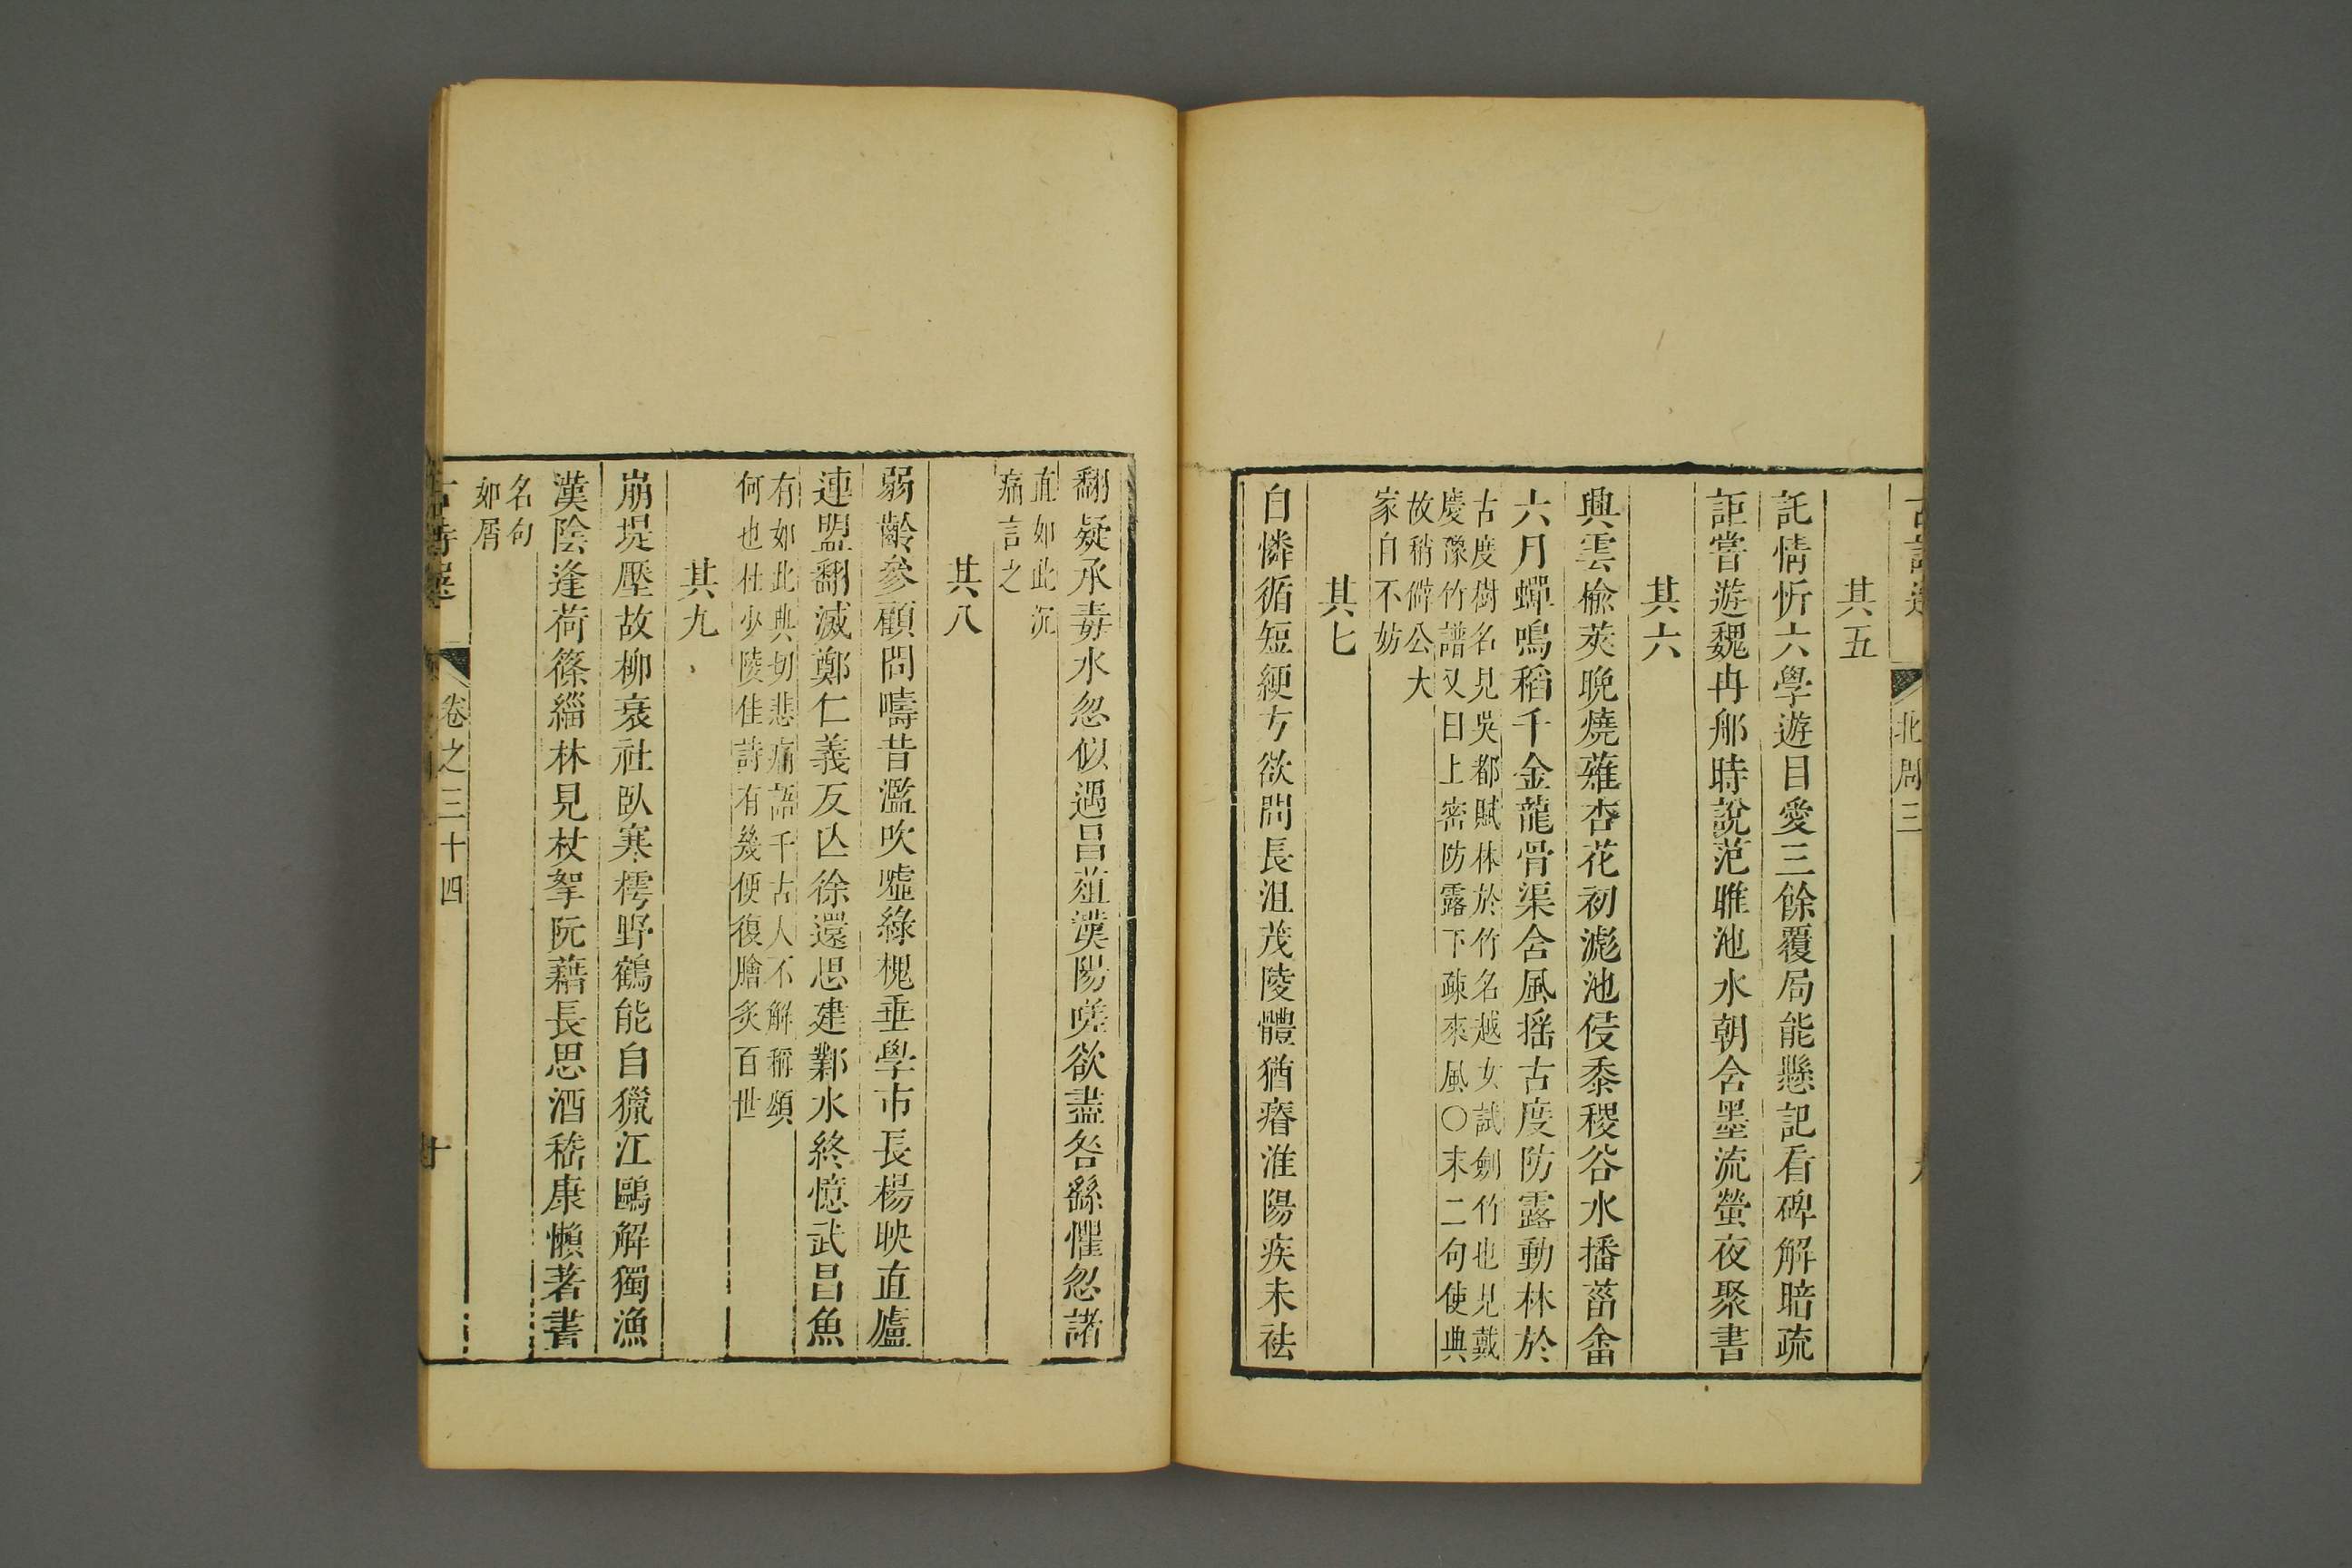 北周三
其五
託情忻六學遊目愛三餘覆局能懸記看碑解暗疏
詎嘗遊魏冉那時說范雎池水朝含墨流螢夜聚書
其六
興雲榆莢晚燒薙杏花初滮池侵黍稷谷水播菑畬
六月蟬鳴稻千金龍骨渠含風搖古度防露動林於
古度樹名見吳都賦林於竹名越女試劍竹也見戴
慶豫竹譜又曰上密防露下疎來風○末二句使典
故稍僻公大
家自不妨
其七
自憐循短綆方欲問長沮茂陵體猶瘠淮陽疾未祛
翻疑承毒水忽似遇昌菹漢陽嗟欲盡咎繇懼忽諸
直如此沉
痛言之
其八
弱齡參顧問疇昔濫吹噓綠槐垂學市長楊映直廬
連盟翻滅鄭仁義反亾徐還思建鄴水終憶武昌魚
有如此典切悲痛語千古人不解稱頌
何也杜少陵佳詩有幾便復膾炙百世
其九
崩堤壓故柳衰社臥寒樗野鶴能自獵江鷗解獨漁
漢陰逢荷篠緇林見杖挐阮藉長思酒嵇康懶著書
名句
如屑
古詩選 卷之三十四 十